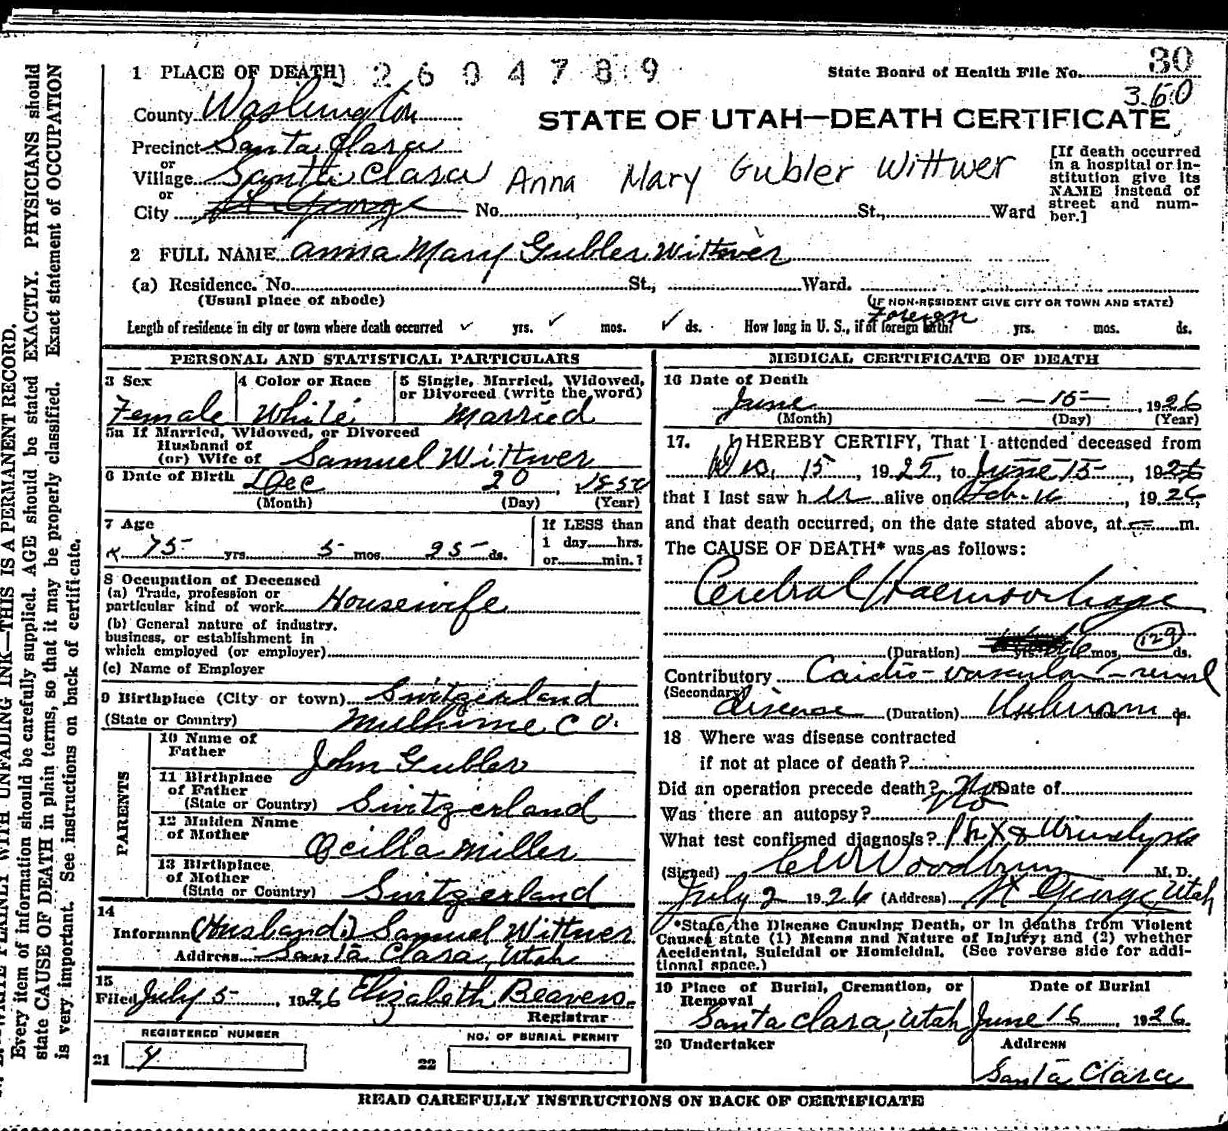 1 PLACE OF DEATH 2604789
State Board of Health File No. 30
360
County Washington
STATE OF UTAH—DEATH CERTIFICATE
Precinct Santa Clara
or
Village Santa Clara Anna Mary Gubler Wittwer
or
City St George No. St., Ward
[If death occurred in a hospital or in-
stitution give its
NAME instead of
street and num-
ber.]
2 FULL NAME Anna Mary Gubler Wittwer
(a) Residence. No. St., Ward.
(Usual place of abode) (IF NON-RESIDENT GIVE CITY OR TOWN AND STATE)
Foreign
Length of residence in city or town where death occurred ✓ yrs. ✓ mos. ✓ ds. How long in U. S., if of foreign birth? yrs. mos. ds.
PERSONAL AND STATISTICAL PARTICULARS
3 Sex
Female
4 Color or Race
White
5 Single, Married, Widowed,
or Divorced (write the word)
Married
5a If Married, Widowed, or Divorced
Husband of
(or) Wife of Samuel Wittwer
6 Date of Birth Dec 20
(Month) (Day) (Year)
7 Age
75 yrs. 5 mos. 25 ds.
If LESS than
1 day hrs.
or min.?
8 Occupation of Deceased
(a) Trade, profession or
particular kind of work Housewife
(b) General nature of industry,
business, or establishment in
which employed (or employer)
(c) Name of Employer
9 Birthplace (City or town) Switzerland
(State or Country) C O.
PARENTS
10 Name of
Father John Gubler
11 Birthplace
of Father
(State or Country) Switzerland
12 Maiden Name
of Mother Miller
13 Birthplace
of Mother
(State or Country) Switzerland
14
Informant (Husband) Samuel Wittwer
Address Santa Clara, Utah
15
Filed July 5, 1926 Elizabeth Beavers.
Registrar
REGISTERED NUMBER
21 4
NO. OF BURIAL PERMIT
22
MEDICAL CERTIFICATE OF DEATH
16 Date of Death
June — — 15 —, 1926
(Month) (Day) (Year)
17. I HEREBY CERTIFY, That I attended deceased from
15 1925, to June 15 1926
that I last saw her alive on Feb. 16, 1926
and that death occurred, on the date stated above, at m.
The CAUSE OF DEATH* was as follows:
Cerebral Haemorrhage
(Duration) yrs. 6 mos. ds.
129
Contributory Cardio-vascular-renal
(Secondary) disease (Duration) Unknown ds.
18 Where was disease contracted
if not at place of death?
Did an operation precede death? No Date of
Was there an autopsy? No
What test confirmed diagnosis? Ph X & Urinalysis
(Signed) Woodbury M. D.
July 2 1926 (Address) St George, Utah
*State the Disease Causing Death, or in deaths from Violent
Causes state (1) Means and Nature of Injury; and (2) whether
Accidental, Suicidal or Homicidal. (See reverse side for addi-
tional space.)
19 Place of Burial, Cremation, or
Removal
Santa Clara, Utah
Date of Burial
June 16 1926.
20 Undertaker
Address
Santa Clara
READ CAREFULLY INSTRUCTIONS ON BACK OF CERTIFICATE
WRITE PLAINLY WITH UNFADING INK—THIS IS A PERMANENT RECORD.
Every item of information should be carefully supplied. AGE should be stated EXACTLY. PHYSICIANS should
state CAUSE OF DEATH in plain terms, so that it may be properly classified. Exact statement of OCCUPATION
is very important. See instructions on back of certificate.